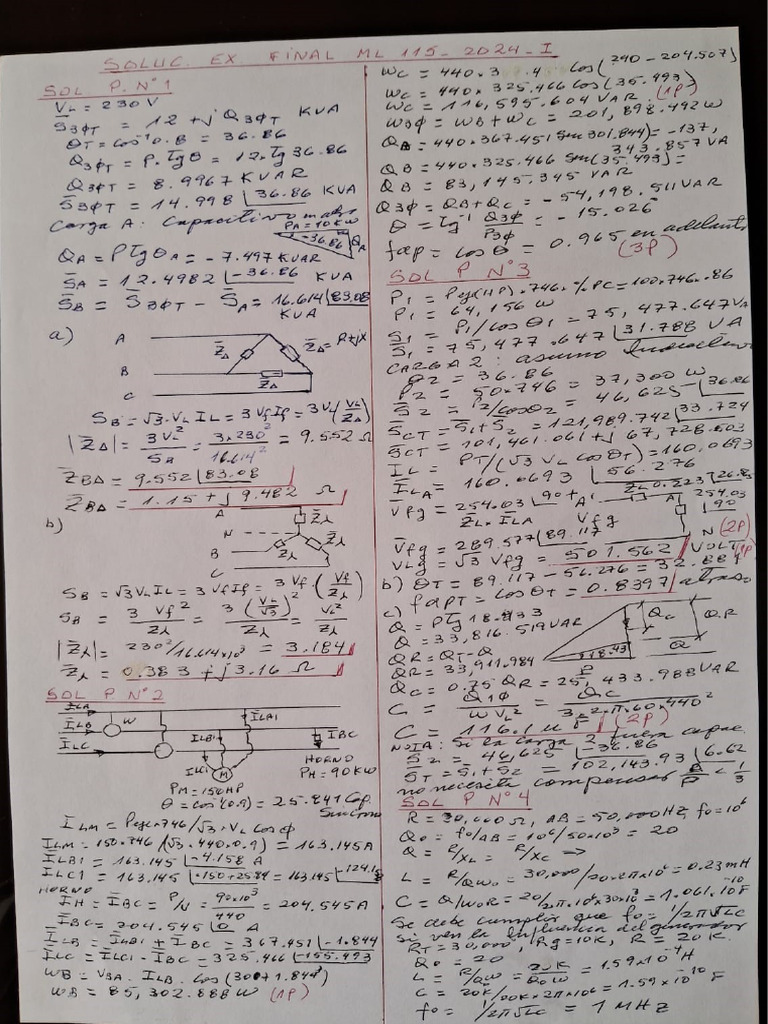 SOLUC. EX FINAL ML 115-2024-I
SOL P.N°1
VL = 230 V
S̄3ϕT = 12 + j Q3ϕT KVA
θT = cos⁻¹0.8 = 36.86
Q3ϕT = P.Tgθ = 12.Tg 36.86
Q3ϕT = 8.9967 KVAR
S̄3ϕT = 14.998 |36.86 KVA
Carga A: Capacitivo
PA = 10KW
-36.86 QA
QA = PTgθA = -7.497 KVAR
S̄A = 12.4982 |-36.86 KVA
S̄B = S̄3ϕT - S̄A = 16.614 |83.08
KVA
a)
A
Z̄Δ
Z̄Δ = R+jX
B
Z̄Δ
C
SB = √3.VL IL = 3 Vf If = 3VL (VL/ZΔ)
|Z̄Δ| = 3VL²/SB = 3x230²/16.614² = 9.552 Ω
Z̄BΔ = 9.552 |83.08
Z̄BΔ = 1.15 + j 9.482 Ω
b)
A
Z̄λ
N
B
C
Z̄λ
SB = √3 VL IL = 3 Vf If = 3 Vf (Vf/Zλ)
SB = 3 Vf²/Zλ = 3 (VL/√3)²/Zλ = VL²/Zλ
|Z̄λ| = 230²/16.614x10³ = 3.184
Z̄λ = 0.383 + j 3.16 Ω
SOL P N°2
ĪLA
ĪLB W
ĪLC
ĪLA1
ĪLB1
ĪLC1
M
ĪBC
HORNO
PH = 90KW
PM = 150HP
θ = cos⁻¹(0.9) = 25.841 Cap.
ILM = Peje.746/√3.VL Cosϕ
ILM = 150.746/(√3.440.0.9) = 163.145A
ĪLB1 = 163.145 |-4.158 A
ĪLC1 = 163.145 |-150+25.84 = 163.145
HORNO
IH = ĪBC = P/V = 90x10³/440 = 204.545A
ĪBC = 204.545 |0 A
ĪLB = ĪLB1 + ĪBC = 367.451 |-1.844
ĪLC = ĪLC1 - ĪBC = 325.466 |-155.493
WB = VBA.ILB.Cos(300+1.844°)
WB = 85,302.888W (1P)
WC = 440.3 cos(240-204.507)
WC = 440x325.466 Cos(35.493)
WC = 116,595.604 VAR (1P)
W3ϕ = WB + WC = 201,898.492 W
QB = 440.367.451 Sen 301.844) = -137,
343.857 VA
QB = 440.325.466 Sen(35.493) =
QB = 83,145.345 VAR
Q3ϕ = QB + QC = -54,198.511 VAR
θ = Tg⁻¹ Q3ϕ/P3ϕ = -15.026
fdp = cos θ = 0.965 en adelanto
(3P)
SOL P N°3
P1 = Peje(HP).746.%PC = 100.746.86
P1 = 64,156 W
S1 = P1/cos θ1 = 75,477.647 VA
S̄1 = 75,477.647 |31.788 VA
CARGA 2: asumo Inductivo
θ2 = 36.86
P2 = 50.746 = 37,300 W
S̄2 = P2/cosθ2 = 46,625
S̄CT = S̄1+S̄2 = 121,989.742 |33.724
S̄CT = 101,461.061 + j 67,728.603
IL = PT/(√3 VL cos θT) = 160.0693
ĪLA = 160.0693 |56.276
V̄fg = 254.03 |90 + Z̄L.ĪLA
A'
A
254.03
|90
Vfg
N (2P)
V̄fg = 289.577 |89.117
VLg = √3 Vfg = 501.562 VOLT (1P)
b) θT = 89.117-56.276 = 32.884
fdpT = cosθT = 0.8397 atraso
c) Q = PTg 18.433
Q = 33,816.519 VAR
QR = QT-Q
QR = 33,911.984
QC = 0.75 QR = 25,433.988 VAR
Qc QR
Q
18.43
P
C = Q1ϕ/W VL² = QC/3.2.π.60.440²
C = 116.1 u f (2P)
NOTA: Si la carga 2 fuera capac.
S̄2 = 46,625 |-36.86
S̄T = S̄1+S̄2 = 102,143.93 |6.62
no necesita compensar
SOL P N°4
R = 30,000 Ω, AB = 50,000HZ, fo = 10⁶
Qo = fo/AB = 10⁶/50x10³ = 20
Q = R/XL = R/XC =>
L = R/QWo = 30,000/20.2πx10⁶ = 0.23mH
C = Q/WoR = 20/2π.10⁶x30x10³ = 1.061.10⁻¹⁰F
Se debe cumplir que fo = 1/2π√LC
Si ven la Influencia del generador
RT = 30,000, Rg = 10K, R = 20K.
Qo = 20
L = R/QW = 20K/QoW = 1.59x10⁻⁴H
C = 20K/00Kx2πx10⁶ = 1.59x10⁻¹⁰ F
fo = 1/2π√LC = 1 MHZ